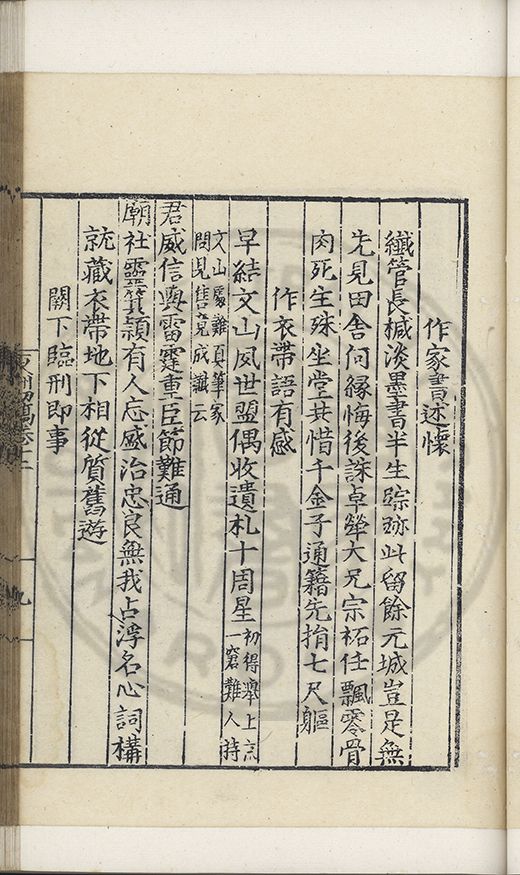 作家書述懷
鐵管長椷淡墨書半生踪跡此留餘元城豈是無
先見田舍何緣悔後誅卓犖大兄宗祏任飄零骨
肉死生殊坐堂共惜千金子通籍先捐七尺軀
作衣帶語有感
早結文山夙世盟偶收遺札十周星初得舉上京
一窘難人持
文山蜀難真筆家
閱見售竟成讖云
君威信與雷霆重臣節難通
廟社靈箕潁有人忘盛治忠良無我占浮名心詞構
就藏衣帶地下相從質舊遊
闕下臨刑即事
九